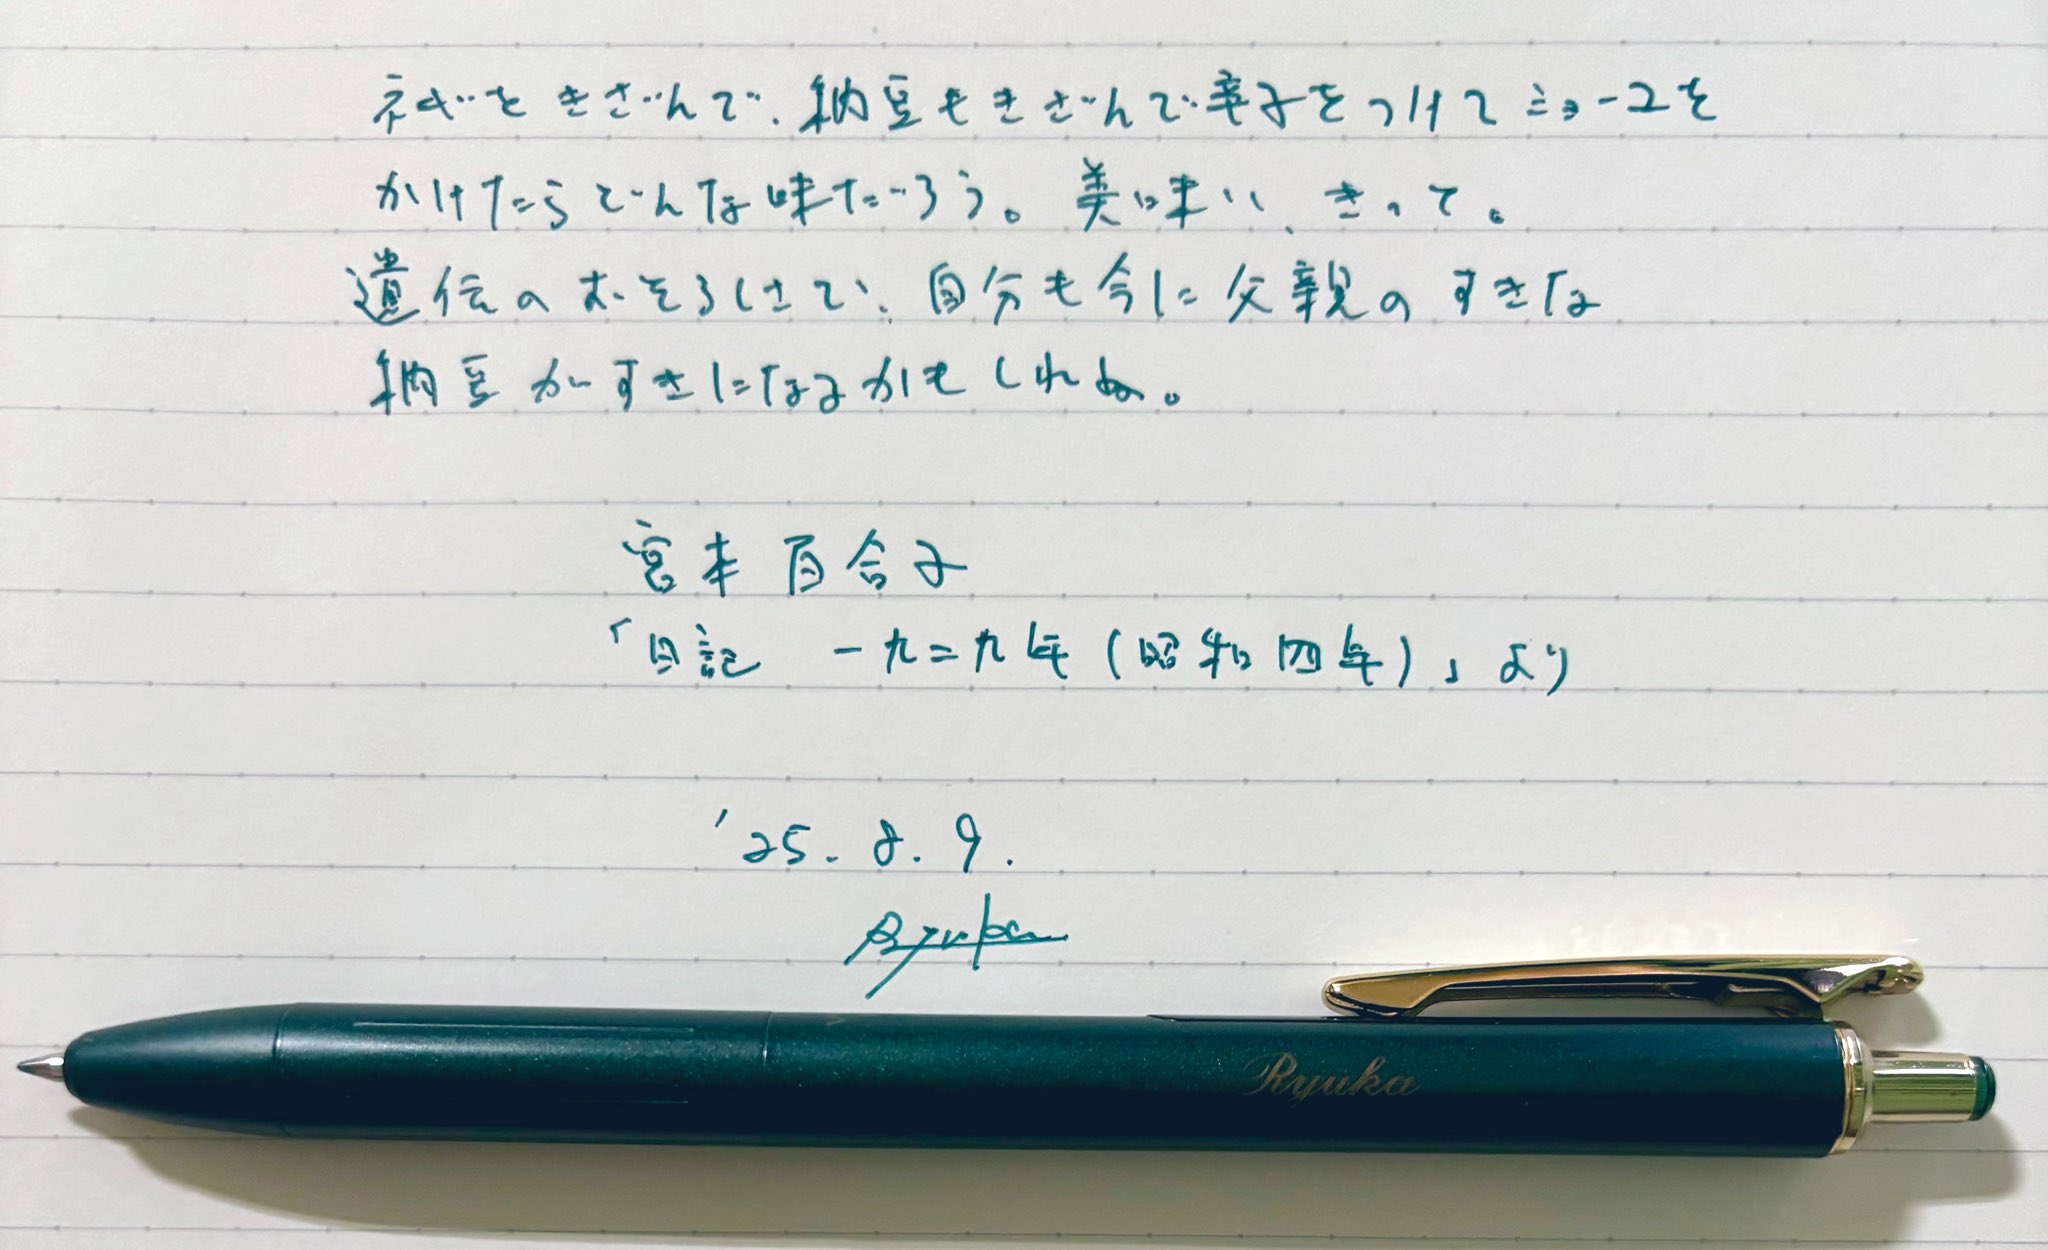 ネギをきざんで、納豆もきざんで辛子をつけてショーユを
かけたらどんな味だろう。美味い、きっと。
遺伝のおそろしさで、自分も今に父親のすきな
納豆がすきになるかもしれぬ。
宮本百合子
「日記 一九二九年(昭和四年)」より
'25. 8. 9.
Ryuka
Ryuka